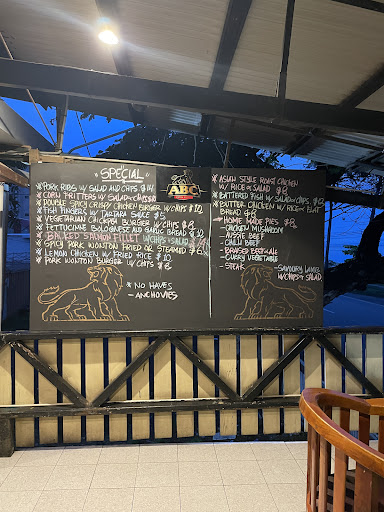 "SPECIAL"
PORK RIBS W SALAD AND CHIPS $14
CORN FRITTERS W SALAD
DOUBLE SPICY CRISPY CHICKEN BURGER W CHIPS $12
FISH FINGERS W TARTARA SAUCE $5
VEGETARIAN CHICKPEA BURGER W CHIPS $8
FETTUCCINE BOLOGNESE AND GARLIC BREAD $10
SPICY PORK WONTON FRIED OR STEAMED $6
LEMON CHICKEN W FRIED RICE $10
PORK WONTON BURGER W CHIPS $8
* NO HAVES
- ANCHOVIES
ABC
ASIAN STYLE ROAST CHICKEN
W RICE & SALAD $8
BATTERED FISH W SALAD & CHIPS $8
BUTTER CHICKEN W RICE & FLAT
BREAD $8
HOME MADE PIES $8
- CHICKEN MUSHROOM
- AUSSIE BEEF
- CHILLI BEEF
- BRAISED BEEF & ALE
- CURRY VEGETABLE
- STEAK